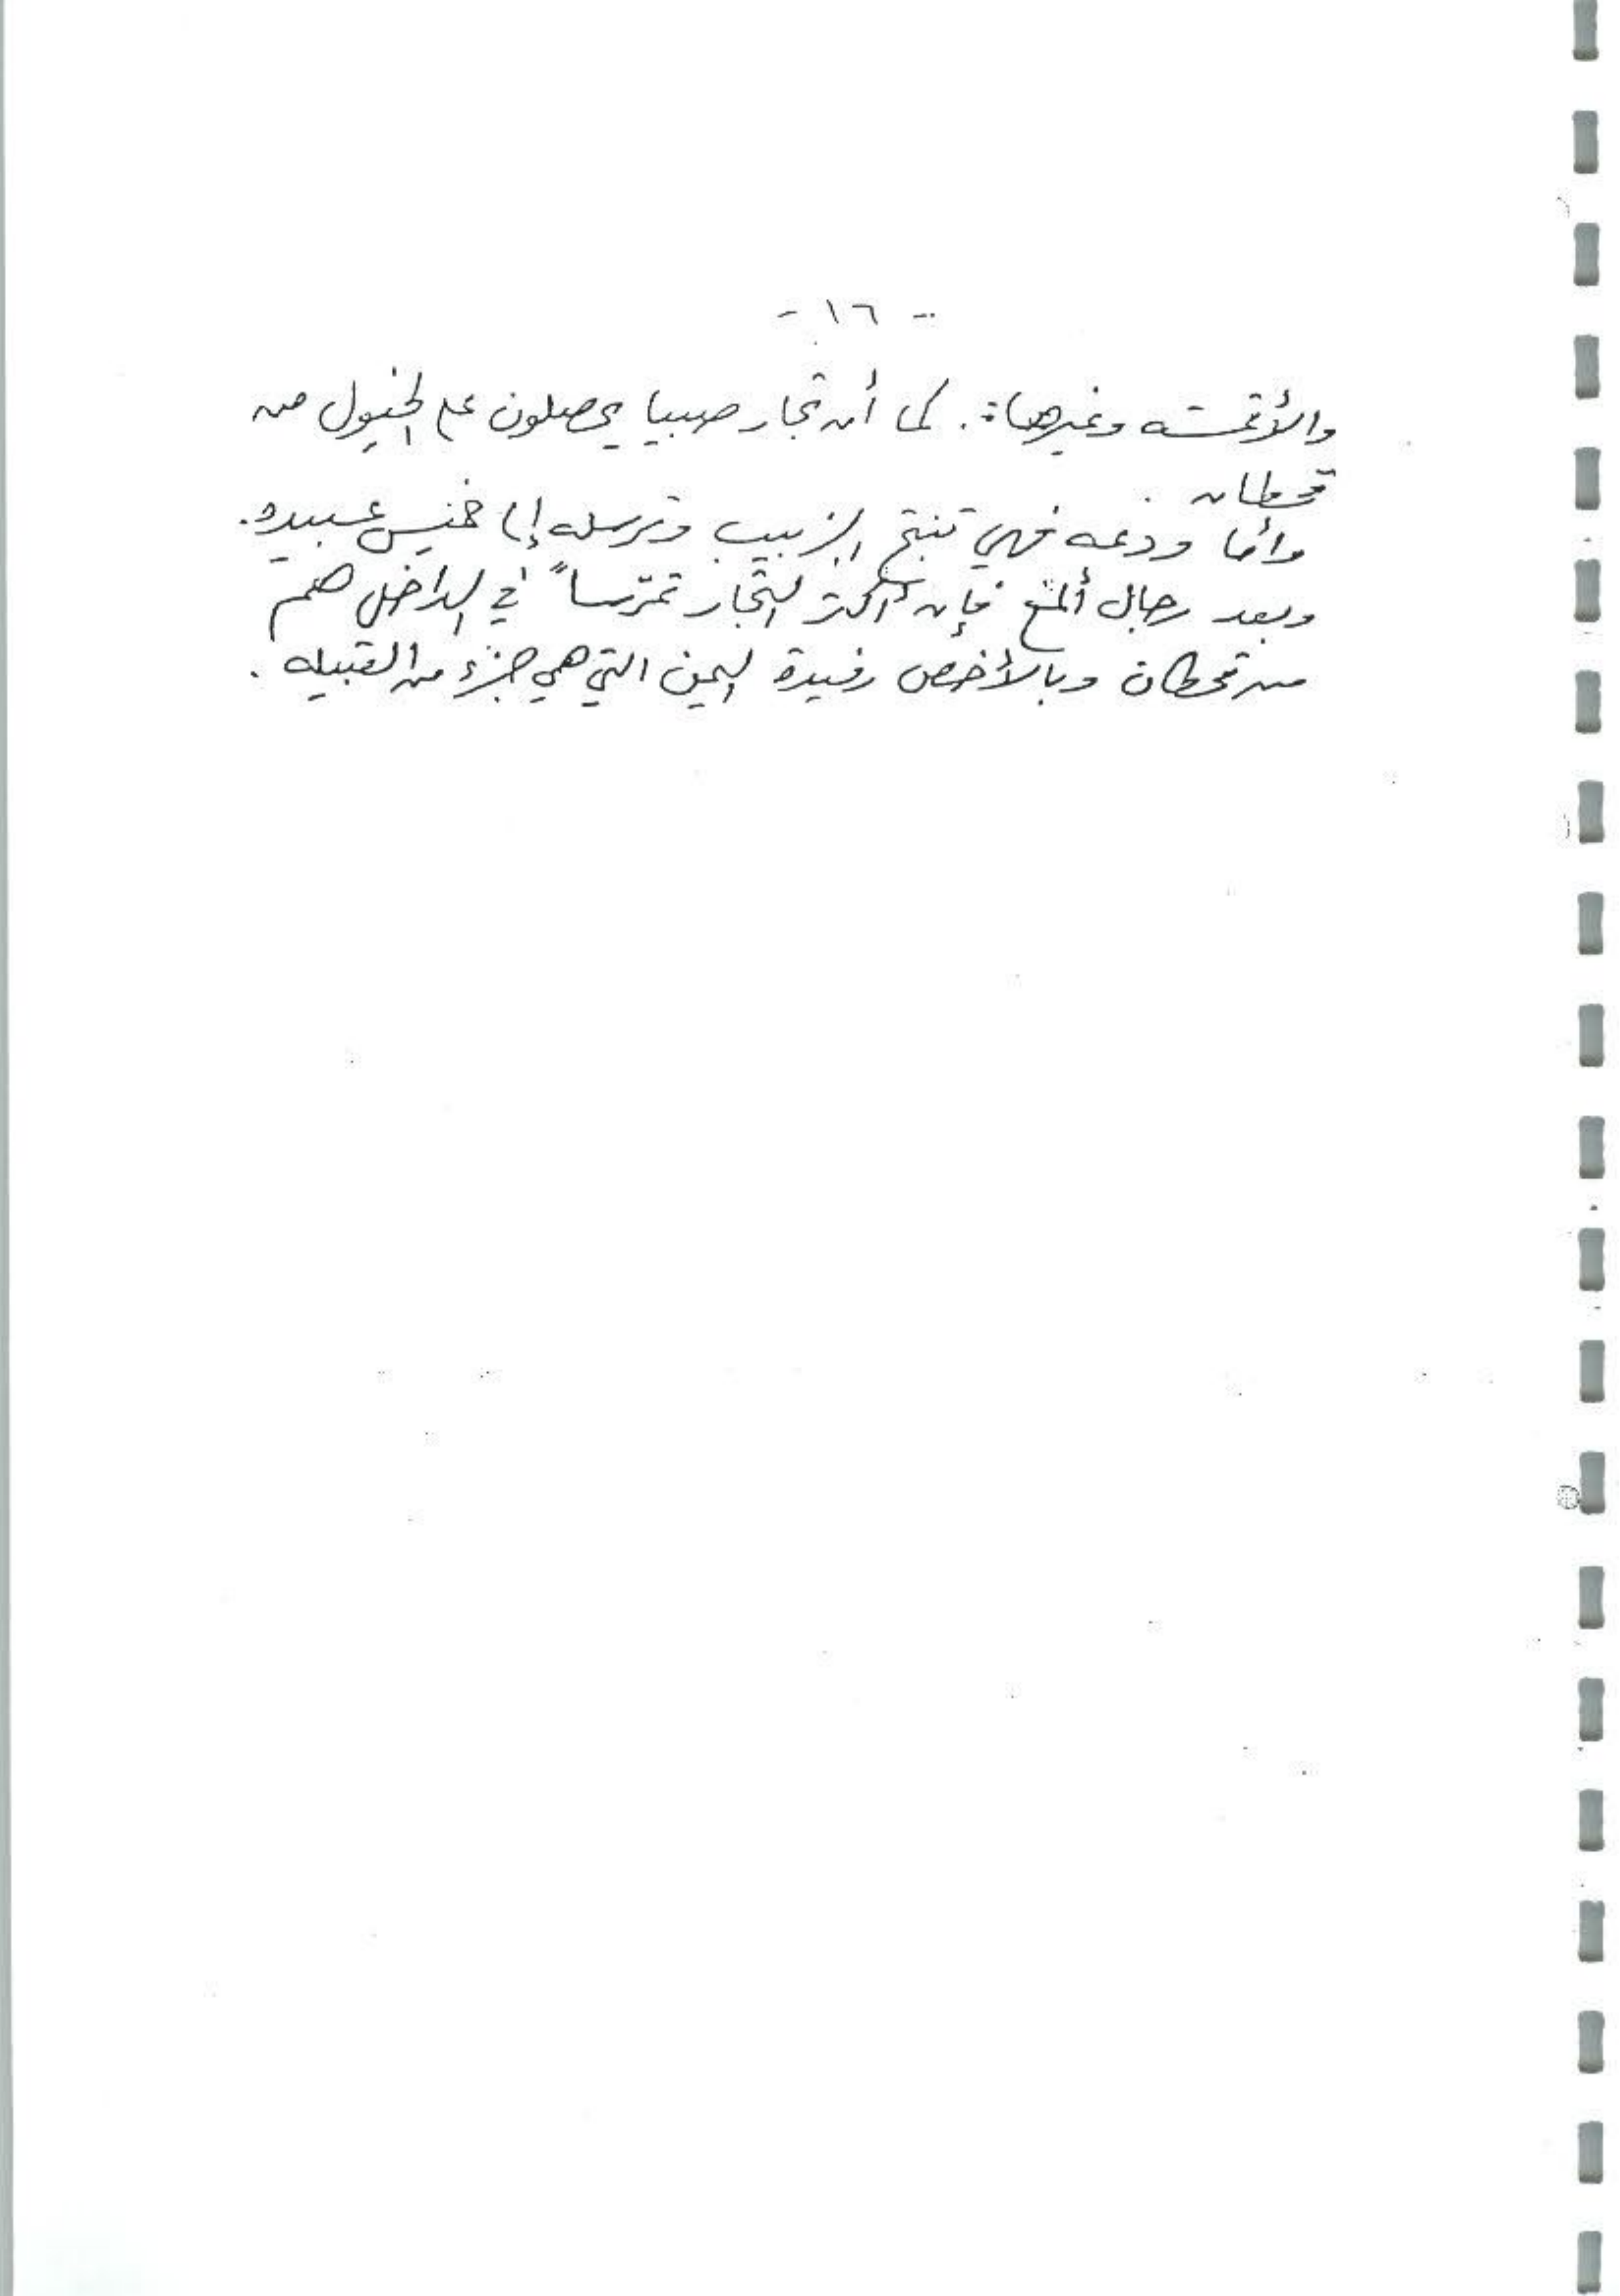 - ١٦ -
والأقمشه وغيرها. كما أن تجار صبيا يحصلون على الخيول من
قحطان.
وأما ودعه فهي تنتج الزبيب وترسله إلى خميس عبيده.
وبعد رجال ألمع فإن أكثر التجار تمرّساً في الداخل هم
من قحطان وبالأخص رفيدة اليمن التي هي جزء من القبيله.